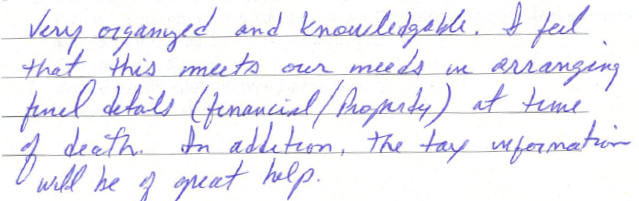 Very organized and knowledgable. I feel
that this meets our needs in arranging
final details (financial/Property) at time
of death. In addition, the tax information
will be of great help.